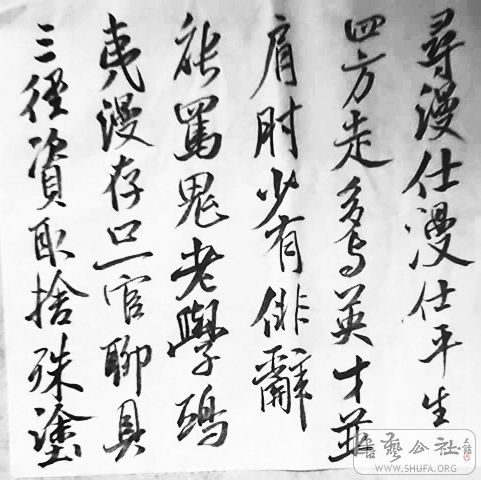 尋漫仕漫仕平生
四方走多与英才並
肩肘少有俳辭
能罵鬼老學鴟
夷漫存亡官聊具
三徑資取捨殊塗
書藝公社
WWW.SHUFA.ORG